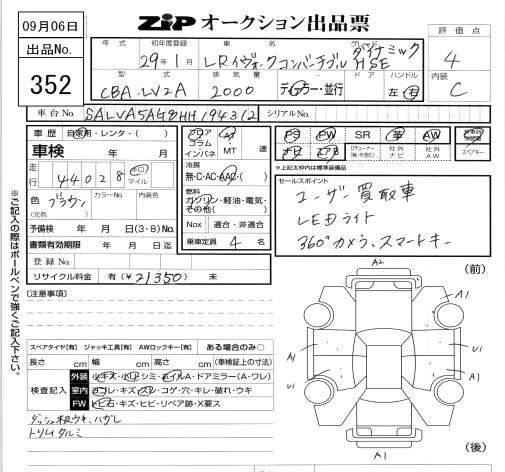 09月06日
ZIP オークション出品票
出品No.
352
年式
初年度登録
車名
グレード
29年1月
LRイヴォークコンバーチブル
ダイナミック
HSE
評価点
4
型式
排気量
ドア
ハンドル
CBA-LV2A
2000
ディーラー・並行
左・右
内装
C
車台No.
SALVA5AG8HH194312
シリアルNo.
車歴
自家用・レンタ・( )
車検
年 月
走行
44028
キロ
マイル
色
ブラウン
(元色)
カラーNo.
内装色
予備検
年 月 日(3・8)No.
書類有効期限
年 月 日迄
登録No.
リサイクル料金
有(¥21350)
未
フロア
コラム
インパネ
AT
MT
速
冷房
無・C・AC・AAC・( )
燃料
ガソリン・軽油・電気・
その他( )
Nox
適合・非適合
乗車定員
4名
PS
PW
SR
革
AW
ナビ
社外
ナビ
社外
AW
スペアキー
※上記太枠内は標準装備品
セールスポイント
ユーザー買取車
LEDライト
360°カメラ、スマートキー
(注意事項)
スペアタイヤ[有] ジャッキ工具[有] AWロックキー[有] ある場合のみ○
長さ cm 幅 cm 高さ cm (車検証上の寸法)
検査記入
外装
小キズ・小凹・シミ・ホイルA・ドアミラー(A・ワレ)
室内
ヨゴレ・キズ・スレ・コゲ・穴・キレ・破れ・ウキ
FW
トビ石・キズ・ヒビ・リペア跡・X要ス
ダッシュ板ウキ、ハガレ
トリムタルミ
※ご記入の際はボールペンで強くご記入下さい。
(前)
A2
A1
A1
U1
U1
A1
(後)